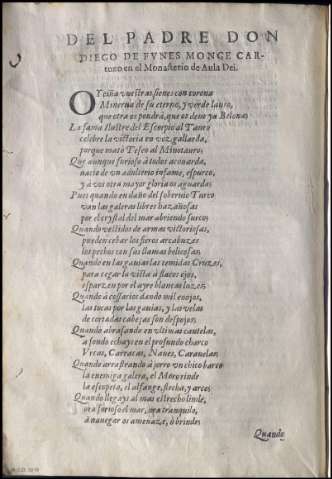 DEL PADRE DON
DIEGO DE FVNES MONGE CAR-
tuxo en el Monasterio de Aula Dei.
OY ciña vuestras sienes con corona
Minerua de su eterno, y verde lauro,
que otra os pondrá, que os deue ya Belona:
La fama ilustre del Escorpio al Tauro
celebre la victoria en voz gallarda,
porque mató Teseo al Minotauro;
Que aunque furioso à todos acouarda,
nacio de un adulterio infame, espurco,
y a vos otra mayor gloria os aguarda:
Pues quando en daño del soberuio Turco
van las galeras libres hazañosas
por el crystal del mar abriendo surco;
Quando vestidos de armas victoriosas,
pueden cebar los fieros arcabuzes
los pechos con sus llamas belicosas;
Quando en las gauias las temidas Cruzes,
para cegar la vista à flacos ojos,
esparzen por el ayre blancas luzes;
Quando à cossarios dando mil enojos,
las tocas por las gauias, y las velas
de cortadas cabezas son despojos;
Quando abrasando en vltimas cautelas,
a fondo echays en el profundo charco
Vrcas, Carracas, Naues, Carauelas;
Quando acresteando à jorro un chico barco
la enemiga galera, el Moro rinde
la escopeta, el alfange, flecha, y arco;
Quando llegays al mas estrecho linde,
ora furioso el mar, ora tranquilo,
à anegar os amenaze, ò brinde;
Quando